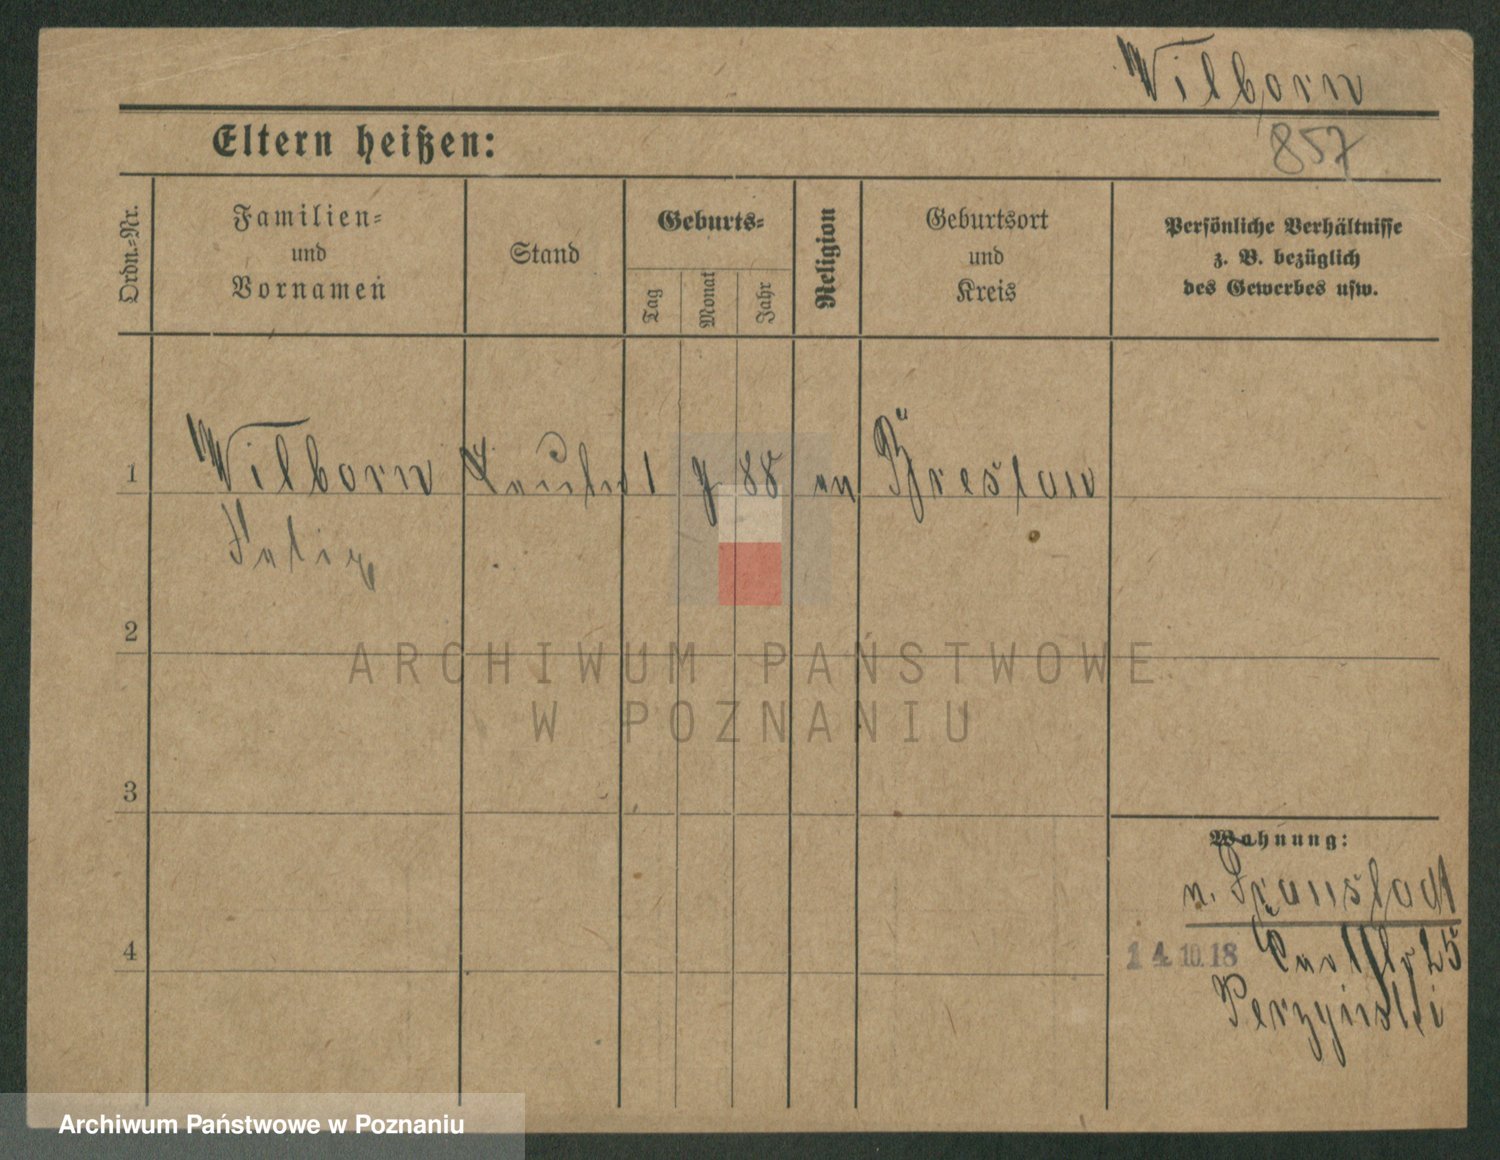 Wilborn
Eltern heißen:
857
Ordn.-Nr.
Familien-
und
Vornamen
Stand
Geburts-
Tag
Monat
Jahr
Religion
Geburtsort
und
Kreis
Persönliche Verhältnisse
z. B. bezüglich
des Gewerbes usw.
1
Wilborn
1
88
Breslau
Felix
2
ARCHIWUM PAŃSTWOWE
W POZNANIU
3
Wohnung:
n. Fraustadt
4
14.10.18
25
Perzyinski
Archiwum Państwowe w Poznaniu